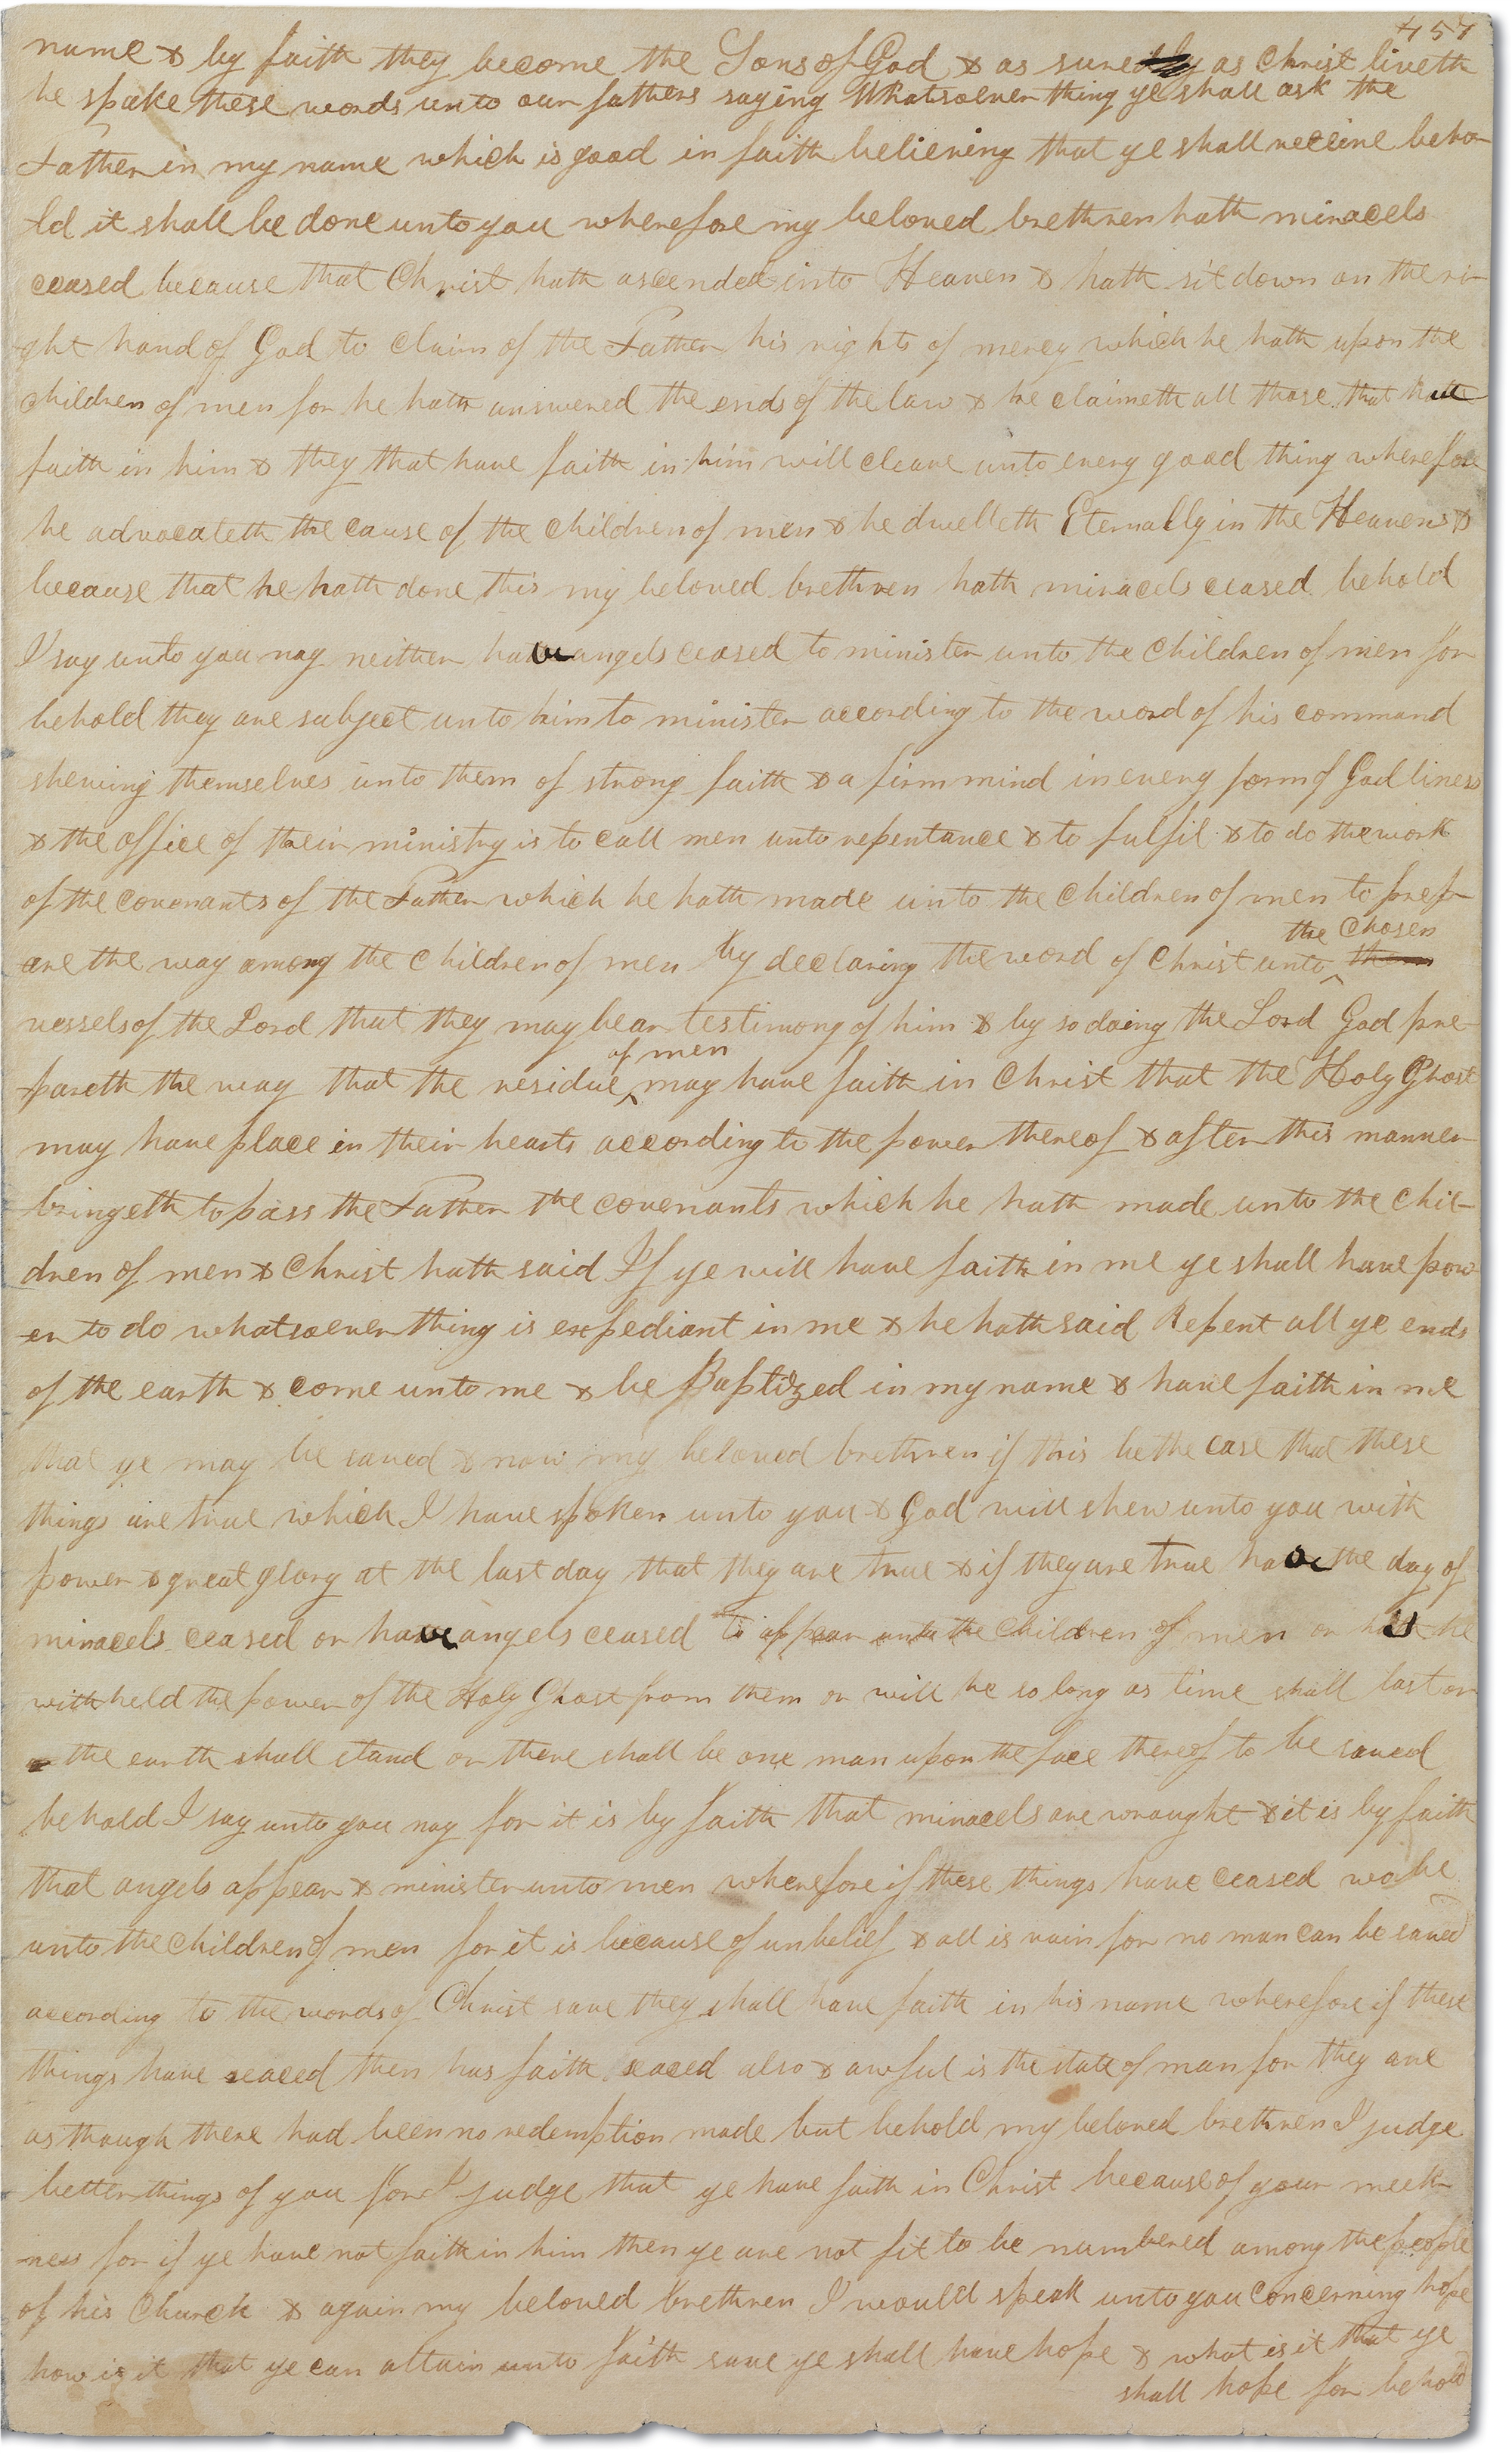 457
name & by faith they become the Sons of God & as surely as Christ liveth
he spake these words unto our fathers saying Whatsoever thing ye shall ask the
Father in my name which is good in faith believeing that ye shall receive beho-
ld it shall be done unto you wherefore my beloved brethren hath miracels
ceased because that Christ hath ascended into Heaven & hath sit down on the ri-
ght hand of God to claim of the Father his rights of mercy which he hath upon the
children of men for he hath answered the ends of the law & he claimeth all those that have
faith in him & they that have faith in him will cleave unto every good thing wherefore
he advocateth the cause of the children of men & he dwelleth Eternally in the Heavens &
because that he hath done this my beloved brethren hath miracels ceased behold
I say unto you nay neither have angels ceased to minister unto the children of men for
behold they are subject unto him to minister according to the word of his command
shewing themselves unto them of strong faith & a firm mind in every form of Godliness
& the office of their ministry is to call men unto repentance & to fulfil & to do the work
of the covenants of the Father which he hath made unto the children of men to prep-
the Chosen
are the way among the children of men by declaring the word of Christ unto ^ them
vessels of the Lord that they may bear testimony of him & by so doing the Lord God pre-
of men
pareth the way that the residue ^ may have faith in Christ that the Holy Ghost
may have place in their hearts according to the power thereof & after this manner
bringeth to pass the Father the covenants which he hath made unto the chil-
dren of men & Christ hath said If ye will have faith in me ye shall have pow-
er to do whatsoever thing is expediant in me & he hath said Repent all ye ends
of the earth & come unto me & be Baptized in my name & have faith in me
that ye may be saved & now my beloved brethren if this be the case that these
things are true which I have spoken unto you & God will shew unto you with
power & great glory at the last day that they are true & if they are true has the day of
miracels ceased or have angels ceased to appear unto the children of men or has he
withheld the power of the Holy Ghost from them or will he so long as time shall last or
the earth shall stand or there shall be one man upon the face thereof to be saved
behold I say unto you nay for it is by faith that miracels are wrought & it is by faith
that angels appear & minister unto men wherefore if these things have ceased wo be
unto the children of men for it is because of unbelief & all is vain for no man can be saved
according to the words of Christ save they shall have faith in his name wherefore if these
things have ceaced then has faith ceaced also & awful is the state of man for they are
as though there had been no redemption made but behold my beloved brethren I judge
better things of you for I judge that ye have faith in Christ because of your meek-
ness for if ye have not faith in him then ye are not fit to be numbered among the people
of his Church & again my beloved brethren I would speak unto you concerning hope
how is it that ye can attain unto faith save ye shall have hope & what is it that ye
shall hope for behold